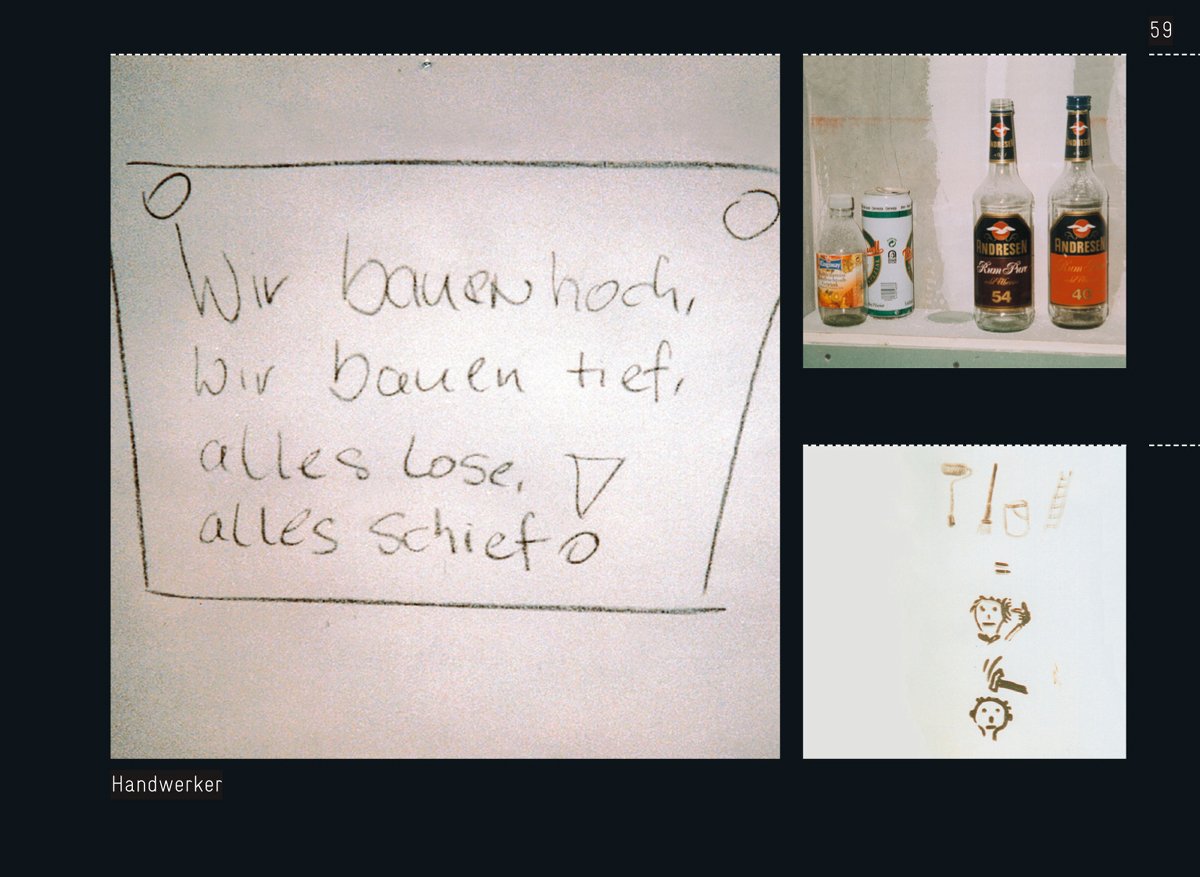 59
Wir bauen hoch,
Wir bauen tief,
alles lose,
alles schief!
ANDRESEN
ANDRESEN
ANDRESEN
Rum Pur
54
ANDRESEN
40
=
Handwerker